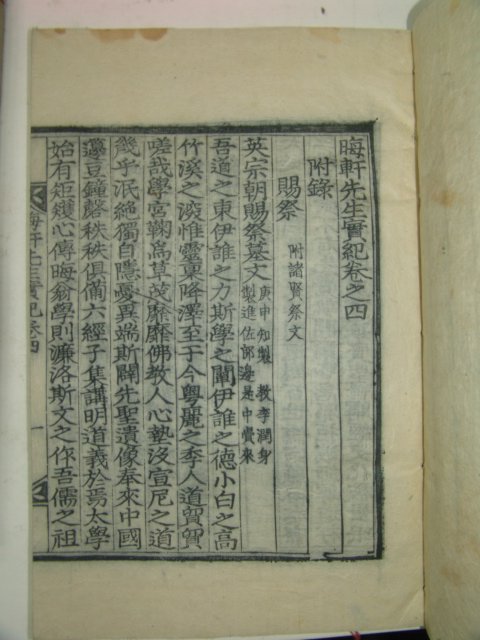 晦軒先生實紀卷之四
附錄
賜祭 附諸賢祭文
英宗朝賜祭墓文 庚申知製 教李潤身
製進佐郎邊是中賫來
吾道之東伊誰之力斯學之闡伊誰之德小白之高
竹溪之淡惟靈稟降澤至于今粤麗之季人道貿貿
嗟哉學宮鞠爲草茂靡靡佛教人心墊沒宣尼之道
幾乎泯絶獨自隱憂異端斯闢先聖遺像奉來中國
籩豆鐘磬秩秩俱備六經子集講明道義於焉太學
始有矩矱心傳晦翁學則濂洛斯文之作吾儒之祖
晦軒先生實紀卷四 一